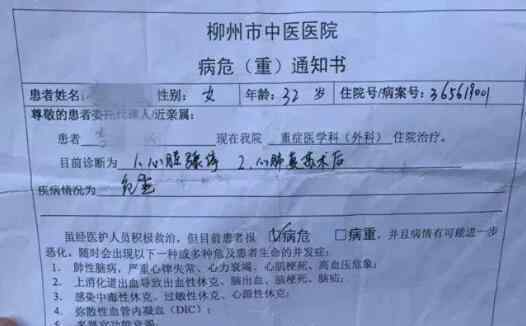 柳州市中医医院
病危（重）通知书
患者姓名： 性别： 女 年龄：32 岁 住院号/病案号：365619001
尊敬的患者委托代理人/近亲属：
患者 现在我院 重症医学科（外科） 住院治疗。
目前诊断为 1.心脏骤停 2.心肺复苏术后
疾病情况为 危重
虽经医护人员积极救治，但目前患者报 ☑病危 □病重，并且病情有可能进一步
恶化，随时会出现以下一种或多种危及患者生命的并发症：
1. 肺性脑病，严重心律失常、心力衰竭、心肌梗死、高血压危象；
2. 上消化道出血导致出血性休克、脑出血、脑梗死、脑疝；
3. 感染中毒性休克、过敏性休克、心源性休克；
4. 弥散性血管内凝血（DIC）；